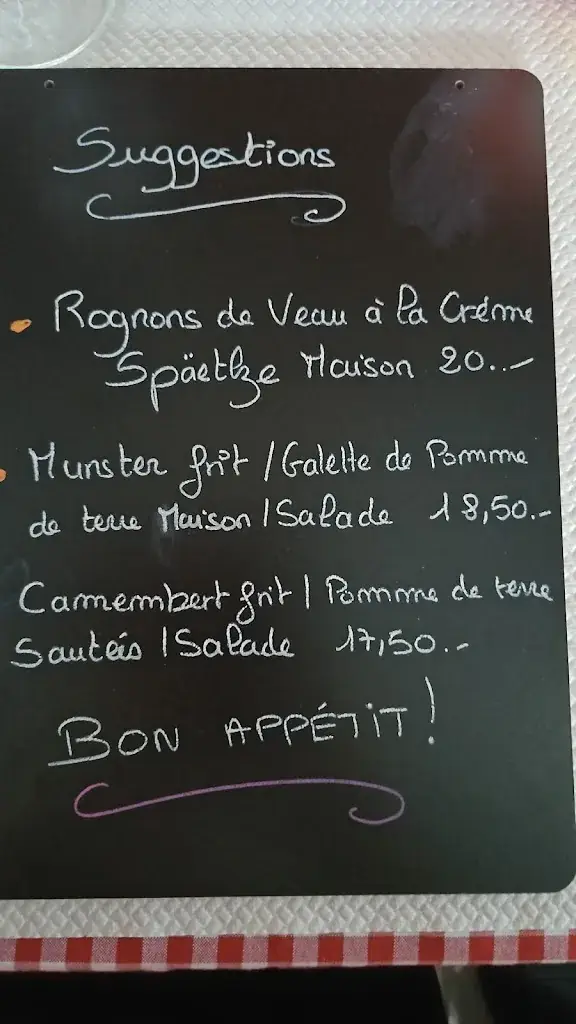 Suggestions
Rognons de Veau à la Créme
Späetlze Maison 20..-
Munster frit / Galette de Pomme
de terre Maison / Salade 18,50.-
Camembert frit / Pomme de terre
Sautéés / Salade 17,50.-
BON APPÉTIT !